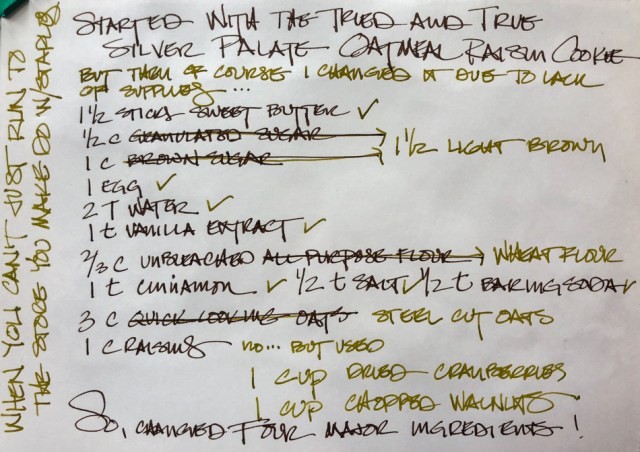 STARTED WITH THE TRIED AND TRUE
SILVER PALATE OATMEAL RAISIN COOKIE
BUT THEN OF COURSE I CHANGED IT DUE TO LACK
OF SUPPLIES...
1 1/2 STICKS SWEET BUTTER ✓
1/2 C GRANULATED SUGAR
1 C BROWN SUGAR → 1 1/2 LIGHT BROWN
1 EGG ✓
2 T WATER ✓
1 t VANILLA EXTRACT ✓
2/3 C UNBLEACHED ALL PURPOSE FLOUR → WHEAT FLOUR
1 t CINNAMON ✓ 1/2 t SALT ✓ 1/2 t BAKING SODA ✓
3 C QUICK COOKING OATS STEEL CUT OATS
1 C RAISINS NO... BUT USED
1 CUP DRIED CRANBERRIES
1 CUP CHOPPED WALNUTS
SO, CHANGED FOUR MAJOR INGREDIENTS!
WHEN YOU CAN'T JUST RUN TO
THE STORE YOU MAKE DO W/STAPLES